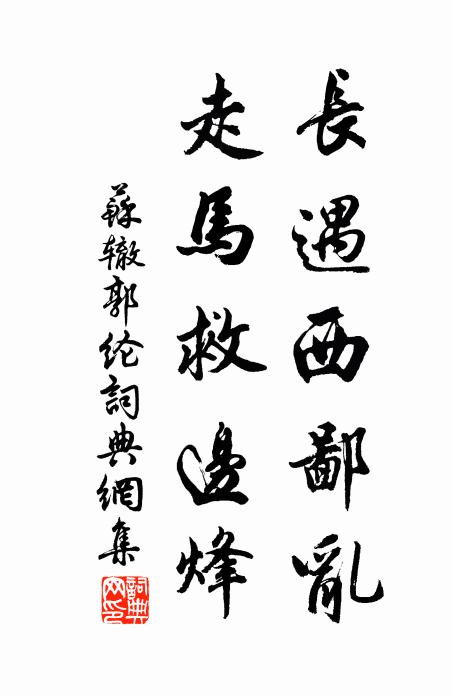 長遇西鄙亂
走馬救邊烽
蘇辙郭纶詞典網集
詞典网印